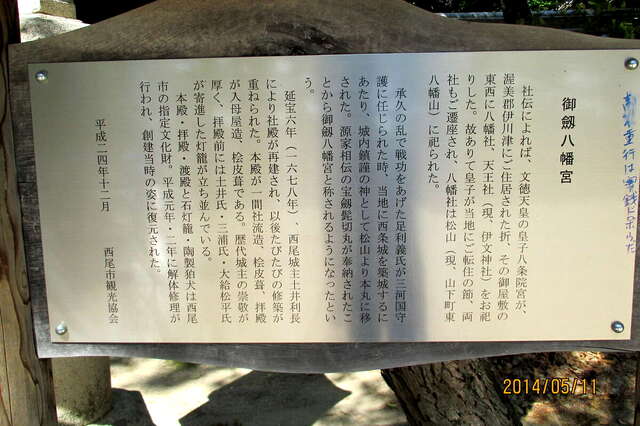 御劔八幡宮
社伝によれば、文徳天皇の皇子八条院宮が、
渥美郡伊川津にご住居された折、その御屋敷の
東西に八幡社、天王社（現、伊文神社）をお祀
りした。故ありて皇子が当地にご転住の節、両
社もご遷座され、八幡社は松山（現、山下町東
八幡山）に祀られた。
承久の乱で戦功をあげた足利義氏が三河国守
護に任じられた時、当地に西条城を築城するに
あたり、城内鎮護の神として松山より本丸に移
された。源家相伝の宝劔髭切丸が奉納されたこ
とから御劔八幡宮と称されるようになったとい
う。
延宝六年（一六七八年）、西尾城主土井利長
により社殿が再建され、以後たびたびの修築が
重ねられた。本殿が一間社流造、桧皮葺、拝殿
が入母屋造、桧皮葺である。歴代城主の崇敬が
厚く、拝殿前には土井氏・三浦氏・大給松平氏
が寄進した灯籠が立ち並んでいる。
本殿・拝殿・渡殿と石灯籠・陶製狛犬は西尾
市の指定文化財。平成元年・二年に解体修理が
行われ、創建当時の姿に復元された。
平成二四年十二月
西尾市観光協会
2014/05/11